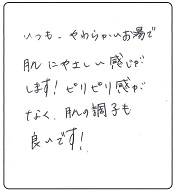 いつも、やわらかいお湯で
肌にやさしい感じが
します！ピリピリ感が
なく、肌の調子も
良いです！